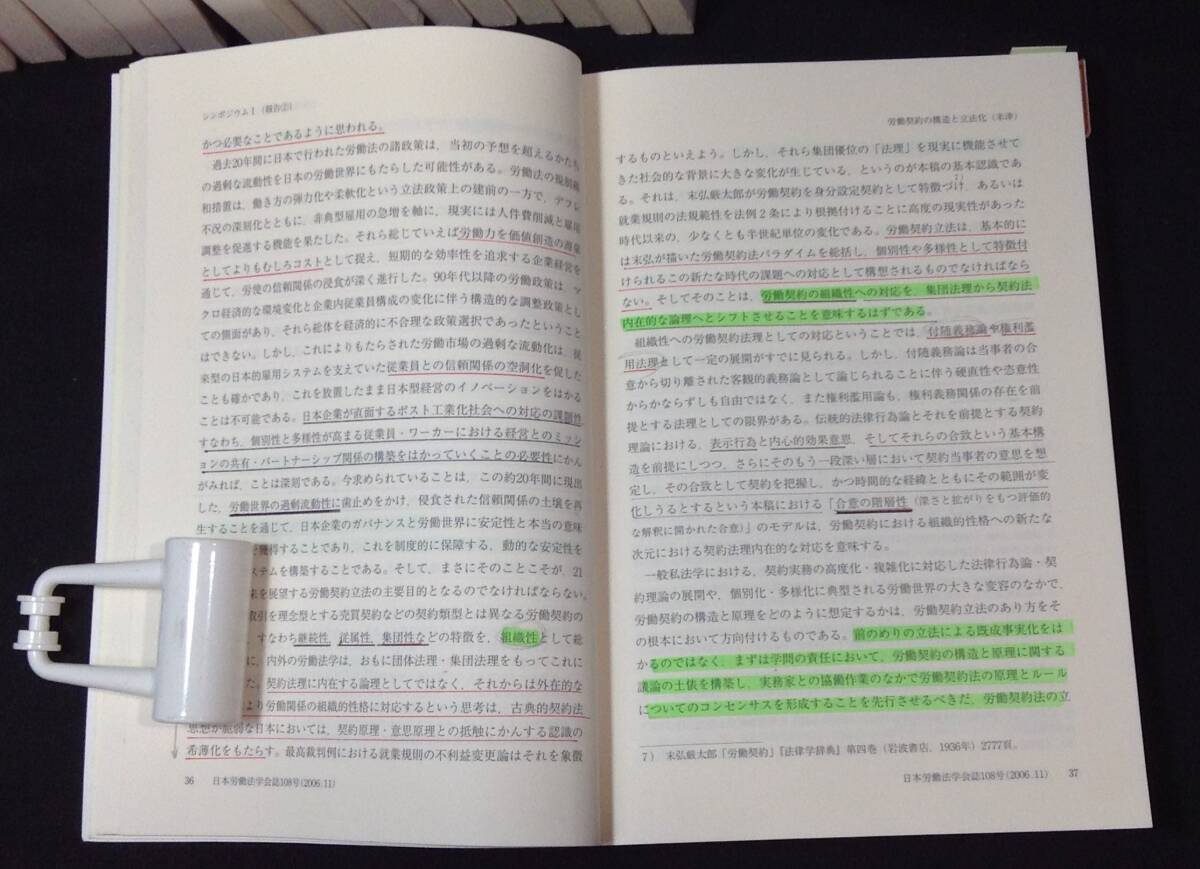 シンポジウムⅠ（報告②）
かつ必要なことであるように思われる。
過去20年間に日本で行われた労働法の諸政策は，当初の予想を超えるかたち
の過剰な流動性を日本の労働世界にもたらした可能性がある。労働法の規制緩
和措置は，働き方の弾力化や柔軟化という立法政策上の建前の一方で，デフレ
不況の深刻化とともに，非典型雇用の急増を軸に，現実には人件費削減と雇用
調整を促進する機能を果たした。それら総じていえば労働力を価値創造の源泉
としてよりもむしろコストとして捉え，短期的な効率性を追求する企業経営を
通じて，労使の信頼関係の浸食が深く進行した。90年代以降の労働政策は，マ
クロ経済的な環境変化と企業内従業員構成の変化に伴う構造的な調整政策とし
ての側面があり，それら総体を経済的に不合理な政策選択であったということ
はできない。しかし，これによりもたらされた労働市場の過剰な流動化は，従
来型の日本的雇用システムを支えていた従業員との信頼関係の空洞化を促した
ことも確かであり，これを放置したまま日本型経営のイノベーションをはかる
ことは不可能である。日本企業が直面するポスト工業化社会への対応の課題性，
すなわち，個別性と多様性が高まる従業員・ワーカーにおける経営とのミッシ
ョンの共有・パートナーシップ関係の構築をはかっていくことの必要性にかん
がみれば，ことは深刻である。今求められていることは，この約20年間に現出
した，労働世界の過剰流動性に歯止めをかけ，侵食された信頼関係の土壌を再
生することを通じて，日本企業のガバナンスと労働世界に安定性と本当の意味
を獲得することであり，これを制度的に保障する，動的な安定性を
ステムを構築することである。そして，まさにそのことこそが，21
来を展望する労働契約立法の主要目的となるのでなければならない。
取引を理念型とする売買契約などの契約類型とは異なる労働契約の
，すなわち継続性，従属性，集団性などの特徴を，組織性として総
に，内外の労働法学は，おもに団体法理・集団法理をもってこれに
た。契約法理に内在する論理としてではなく，それからは外在的な
より労働関係の組織的性格に対応するという思考は，古典的契約法
思想が脆弱な日本においては，契約原理・意思原理との抵触にかんする認識の
希薄化をもたらす。最高裁判例における就業規則の不利益変更論はそれを象徴
36　日本労働法学会誌108号(2006.11)
労働契約の構造と立法化（米津）
するものといえよう。しかし，それら集団優位の「法理」を現実に機能させて
きた社会的な背景に大きな変化が生じている，というのが本稿の基本認識であ
る。それは，末弘厳太郎が労働契約を身分設定契約として特徴づけ7)，あるいは
就業規則の法規範性を法例２条により根拠付けることに高度の現実性があった
時代以来の，少なくとも半世紀単位の変化である。労働契約立法は，基本的に
は末弘が描いた労働契約法パラダイムを総括し，個別性や多様性として特徴付
けられるこの新たな時代の課題への対応として構想されるものでなければなら
ない。そしてそのことは，労働契約の組織性への対応を，集団法理から契約法
内在的な論理へとシフトさせることを意味するはずである。
組織性への労働契約法理としての対応ということでは，付随義務論や権利濫
用法理として一定の展開がすでに見られる。しかし，付随義務論は当事者の合
意から切り離された客観的義務論として論じられることに伴う硬直性や恣意性
からかならずしも自由ではなく，また権利濫用論も，権利義務関係の存在を前
提とする法理としての限界がある。伝統的法律行為論とそれを前提とする契約
理論における，表示行為と内心的効果意思，そしてそれらの合致という基本構
造を前提にしつつ，さらにそのもう一段深い層において契約当事者の意思を想
定し，その合致として契約を把握し，かつ時間的な経緯とともにその範囲が変
化しうるとするという本稿における「合意の階層性（深さと拡がりをもつ評価的
な解釈に開かれた合意）」のモデルは，労働契約における組織的性格への新たな
次元における契約法理内在的な対応を意味する。
一般私法学における，契約実務の高度化・複雑化に対応した法律行為論・契
約理論の展開や，個別化・多様化に典型される労働世界の大きな変容のなかで，
労働契約の構造と原理をどのように想定するかは，労働契約立法のあり方をそ
の根本において方向付けるものである。前のめりの立法による既成事実化をは
かるのではなく，まずは学問の責任において，労働契約の構造と原理に関する
議論の土俵を構築し，実務家との協働作業のなかで労働契約法の原理とルール
についてのコンセンサスを形成することを先行させるべきだ，労働契約法の立
7）　末弘厳太郎「労働契約」『法律学辞典』第四巻（岩波書店，1936年）2777頁。
日本労働法学会誌108号(2006.11)　37